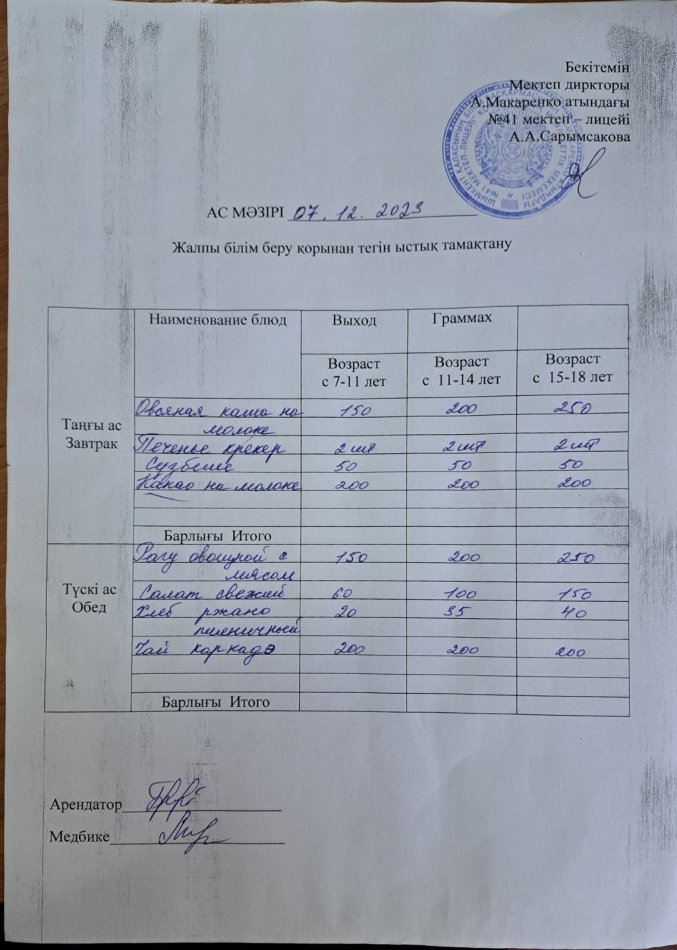 Бекітемін
Мектеп дирkторы
А.Макаренко атындағы
№41 мектеп – лицейі
А.А.Сарымсакова
АС МӘЗІРІ 07. 12. 2023
Жалпы білім беру қорынан тегін ыстық тамақтану
Наименование блюд Выход Граммах
Возраст с 7-11 лет Возраст с 11-14 лет Возраст с 15-18 лет
Таңғы ас
Завтрак
Овсяная каша на 150 200 250
молоке
Печенье крекер 2 шт 2 шт 2 шт
Сүзбеше 50 50 50
Какао на молоке 200 200 200
Барлығы Итого
Түскі ас
Обед
Рагу овощной с 150 200 250
мясом
Салат свежий 60 100 150
Хлеб ржано 20 35 40
пшеничный
Чай каркадэ 200 200 200
Барлығы Итого
Арендатор
Медбике